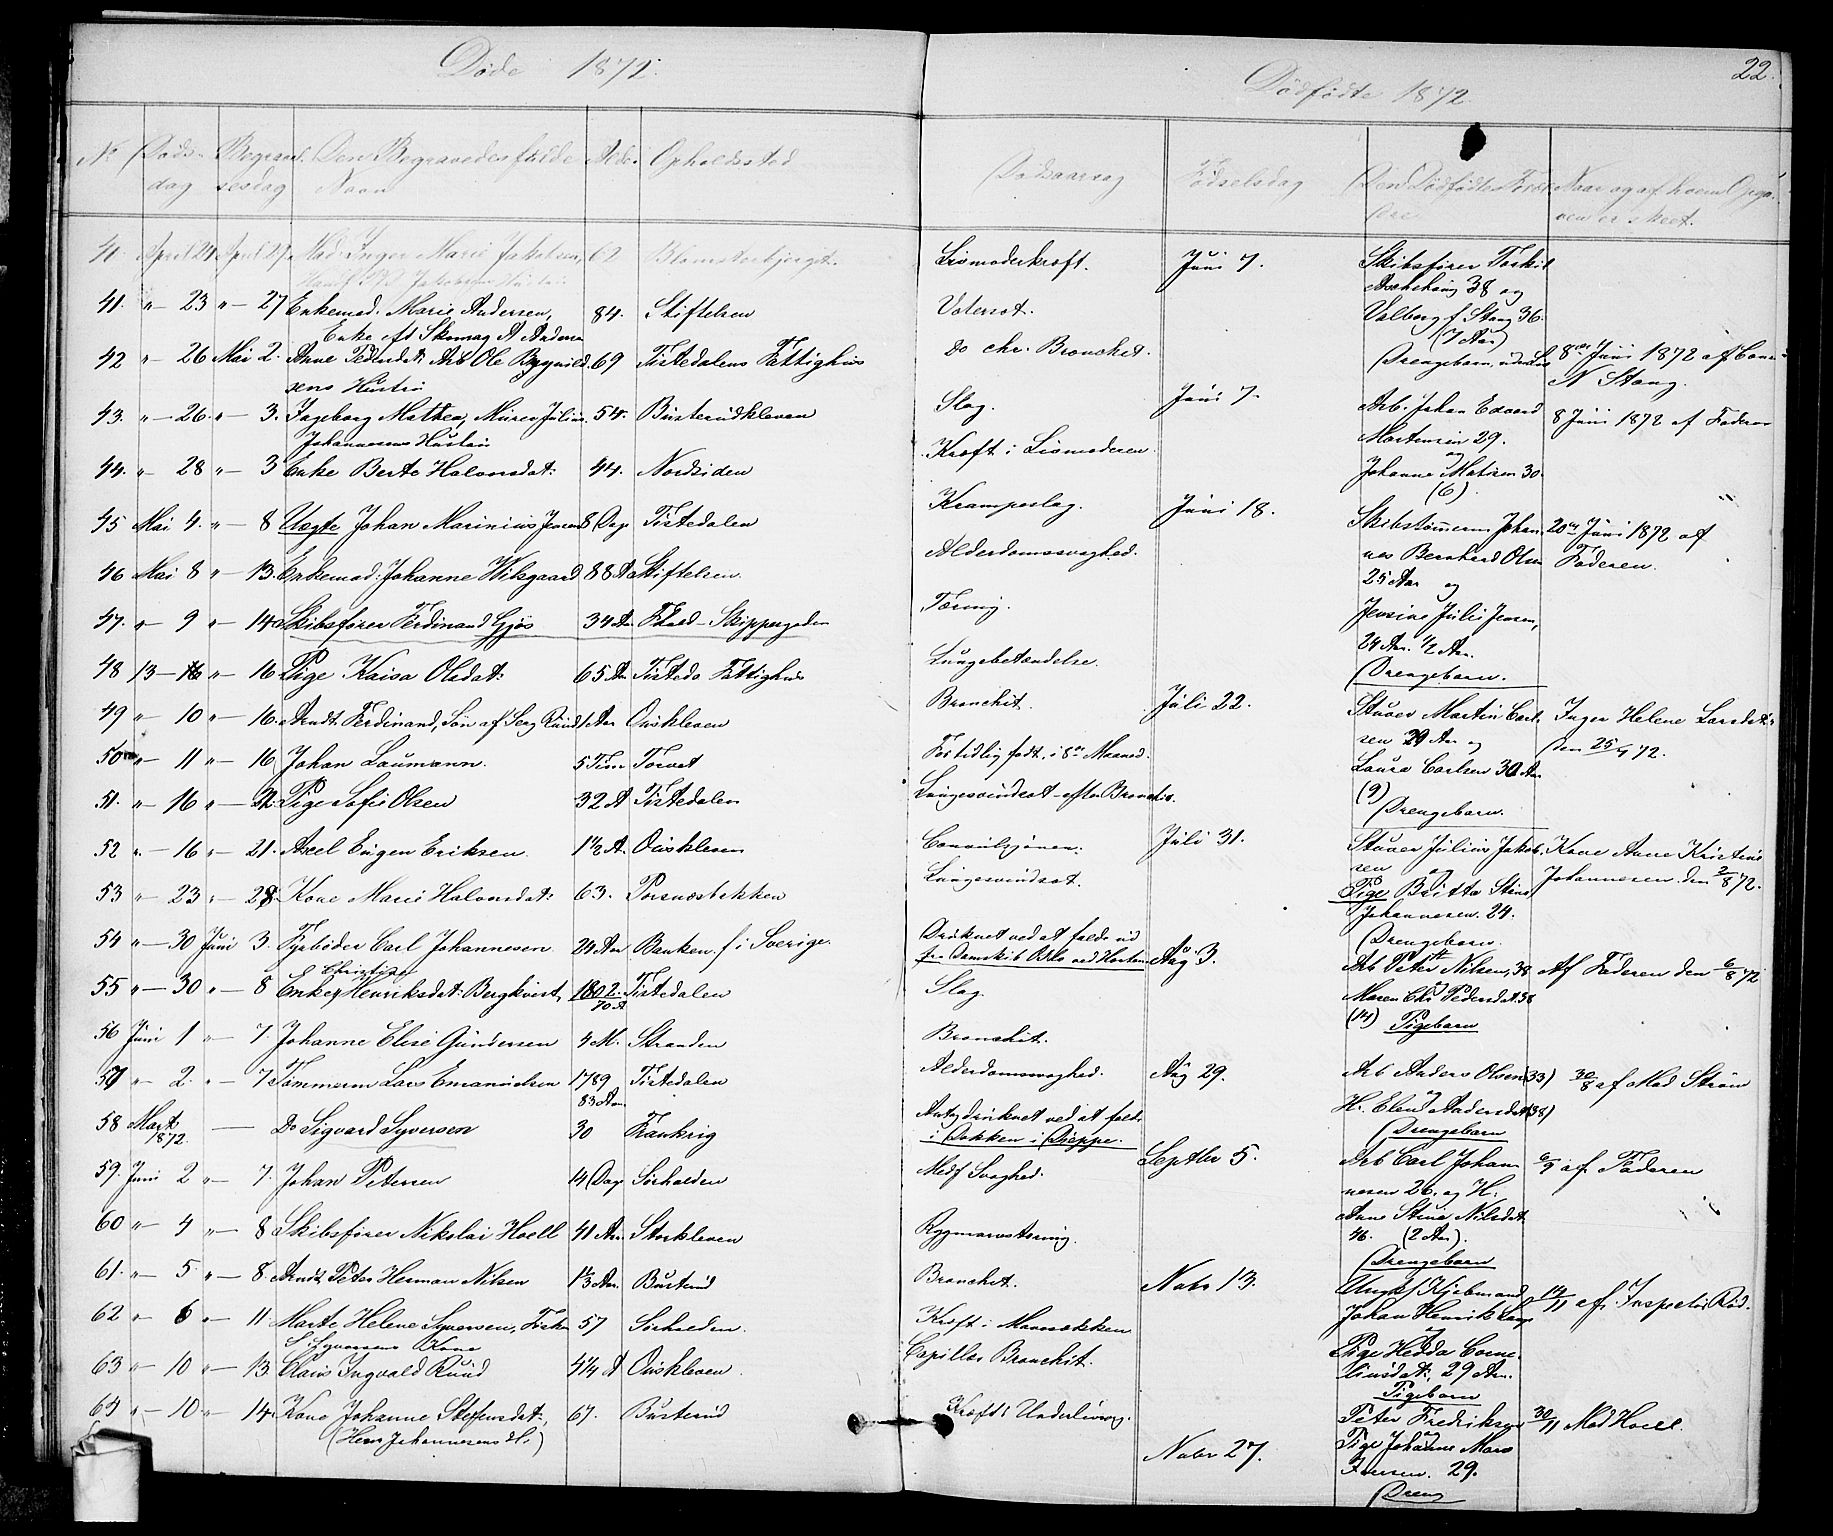 Døde 1872.
Dødfødte 1872.
22.
No Døds- Begravel- Den Begravedes fulde Alder Opholdssted Dødsaarsag Fødselsdag Den Dødfødtes Foræl-
dag sesdag Navn
dre
41. April 21 April 27 Mad. Inger Marie Jakobsen, 62 Blomsterbjerget. Livmoderkræft.
41. " 23 " 27 Enkemad. Marie Andersen, 84. Stiftelsen Vatersot.
Enke af Skomag A Anders
42 " 26 Mai 2. Anne Arb Ole 69 Tistedalens Fattighus Do chr. Bronchit.
sens Hustru
43. " 26. " 3. Ingeborg Mathea, Murer Julius 54. Busterudkleven Slag.
Johannesens Hustru
44. " 28 " 3 Enke Berte Halvorsdat: 44. Nordsiden Kræft i Livmoderen.
45 Mai 4. " 8 Uægte Johan Marinius Jensen 8 Dage Tistedalen Krampeslag.
46 Mai 8 " 13. Enkemad: Johanne Wilsgaard 88 Aar Stiftelsen. Alderdomssvaghed.
47. " 9 " 14 Skibsfører Ferdinand Gjøs 34 Aar Skippergaden Tæring.
48 13 " 16 Pige Kaisa Olsdat: 65 Aar Tisteda Fattighus Lungebetændelse.
49 " 10 " 16. Ferdinand, Søn af Ruud 1 Aar Ouskleven Bronchit.
50 " 11 " 16 Johan Laumann. 5 Timer Torvet For tidlig født, i 8de Maaned.
51. " 16 " 21. Pige Sofie Olsen 32 A Tistedalen Lungesvindsot efter Bronchit.
52 " 16 " 21. Axel Eugen Eriksen. 1 1/2 A. Ouskleven Convulsjoner.
53 " 23 " 28 Kone Marie Halvorsdat: 63. Porsnæsbekken Lungesvindsot.
54 " 30 Juni 3. Fyrbøder Carl Johannesen 24 Aar Banken. f i Sverige. Druknet ved at falde ud
fra Damskib Oslo ved Horten
55 " 30 " 8 Enke Christine Henriksdat: Bergkvist, 1802. 70 A Tistedalen Slag.
56 Juni 1 " 7. Johanne Elise Gundersen 4 M. Stranden Bronchit.
57 " 2. " 7 Tømmerm Lars Emanuelsen 1789 83 Aar. Tistedalen Alderdomssvaghed.
58 Marts 1872. Do Sigvard Syversen 30 Frankrig Antag druknet ved at falde
i Dokken i Dieppe.
59. Juni 2 " 7. Johan Petersen 14 Dage Sørhalden Medf Svaghed.
60 " 4 " 8 Skibsfører Nikolai Hoell 41 Aar. Storkleven Rygmarvstæring.
61. " 5 " 8. Peter Herman Nilsen 1 1/3 Aar. Busterud Bronchit.
62 " 6 " 11. Marte Helene Syversen, 57 Sørhalden. Kræft i Mavesækken
S. Syversens Kone
63 " 10 " 13. Claus Ingvald Ruud 4 1/4 A Ouskleven. Capillær Bronchit.
64 " 10 " 14. Kone Johanne Steffensdat:, 67. Busterud Kræft i Underlivet.
(Hans Johannesens H.)
Juni 7. Skibsfører Torkil
38 og
Valborg f. Stang 36.
(7 Aar)
Drengebarn 8de Juni 1872 af
N Stang.
Juni 7. Arb. Johan Edvard 8 Juni 1872 af Faderen
Martensen 29.
og
Johanne Matisen 30.
(6)
Juni 18. Skibstømerm Johan- 20de Juni 1872 af
nes Bernhard Olsen Faderen.
25 Aar og
Jensine Julie Jensen,
24 Aar. 1/2 Aar.
Drengebarn.
Juli 22. Stuver Martin Carl- Inger Helene Larsdat:
sen 29 Aar og den 25/7 72.
Laura Carlsen 30 Aar
(9)
Drengebarn.
Juli 31. Stuver Julius Jakob- Kone Anne Kristine
sen og Johannesen. den 2/8 72.
Pige Britta Stine
Johannesen. 24.
Drengebarn.
Aug 3. Arb Peter Nilsen, 38 Af Faderen den 6/8 72
Maren Chr Pedersdat 38
(14) Pigebarn
Aug 29. Arb Anders Olsen (33) 30/8 af Mad Strøm
og
H. Elene Andersdat (38)
Drengebarn
Septbr 5. Arb Carl Johan- 6/9 af Faderen
nesen 26. og H.
Anne Stine Nilsdat
46. (2 Aar).
Drengebarn
Nobr 13. Ungk. Kjøbmand 14/11 af Inspectør Rød.
Johan Henrik
og
Pige Hedda Corne-
liusdat. 29 Aar.
Pigebarn
Nobr 27. Peter Fredriksen 30/11 Mad Hoell.
og
Pige Johanne Mars
Jensen. 29.
Dreng